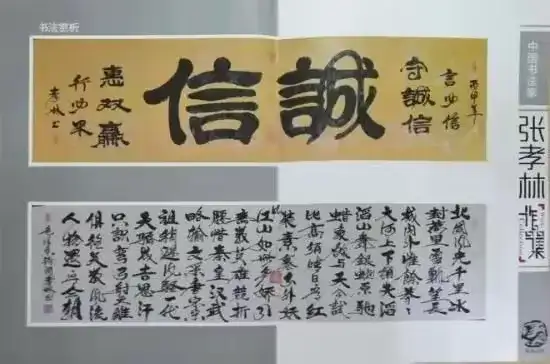 书法赏析
丙申年
言必信
守誠信
誠信
惠双赢
行必果
孝林书
北国风光千里冰
封萬里雪飘望長
城内外惟餘莽莽
大河上下頓失滔
滔山舞銀蛇原馳
蜡象欲与天公試
比高須晴日看红
装素裹分外妖
江山如此多娇引
無數英雄竞折
腰惜秦皇汉武
略输文采唐宗宋
祖稍逊风骚一代
天骄成吉思汗
只識弯弓射大雕
俱往矣數风流
人物还看今朝
中国书法家
张孝林作品集